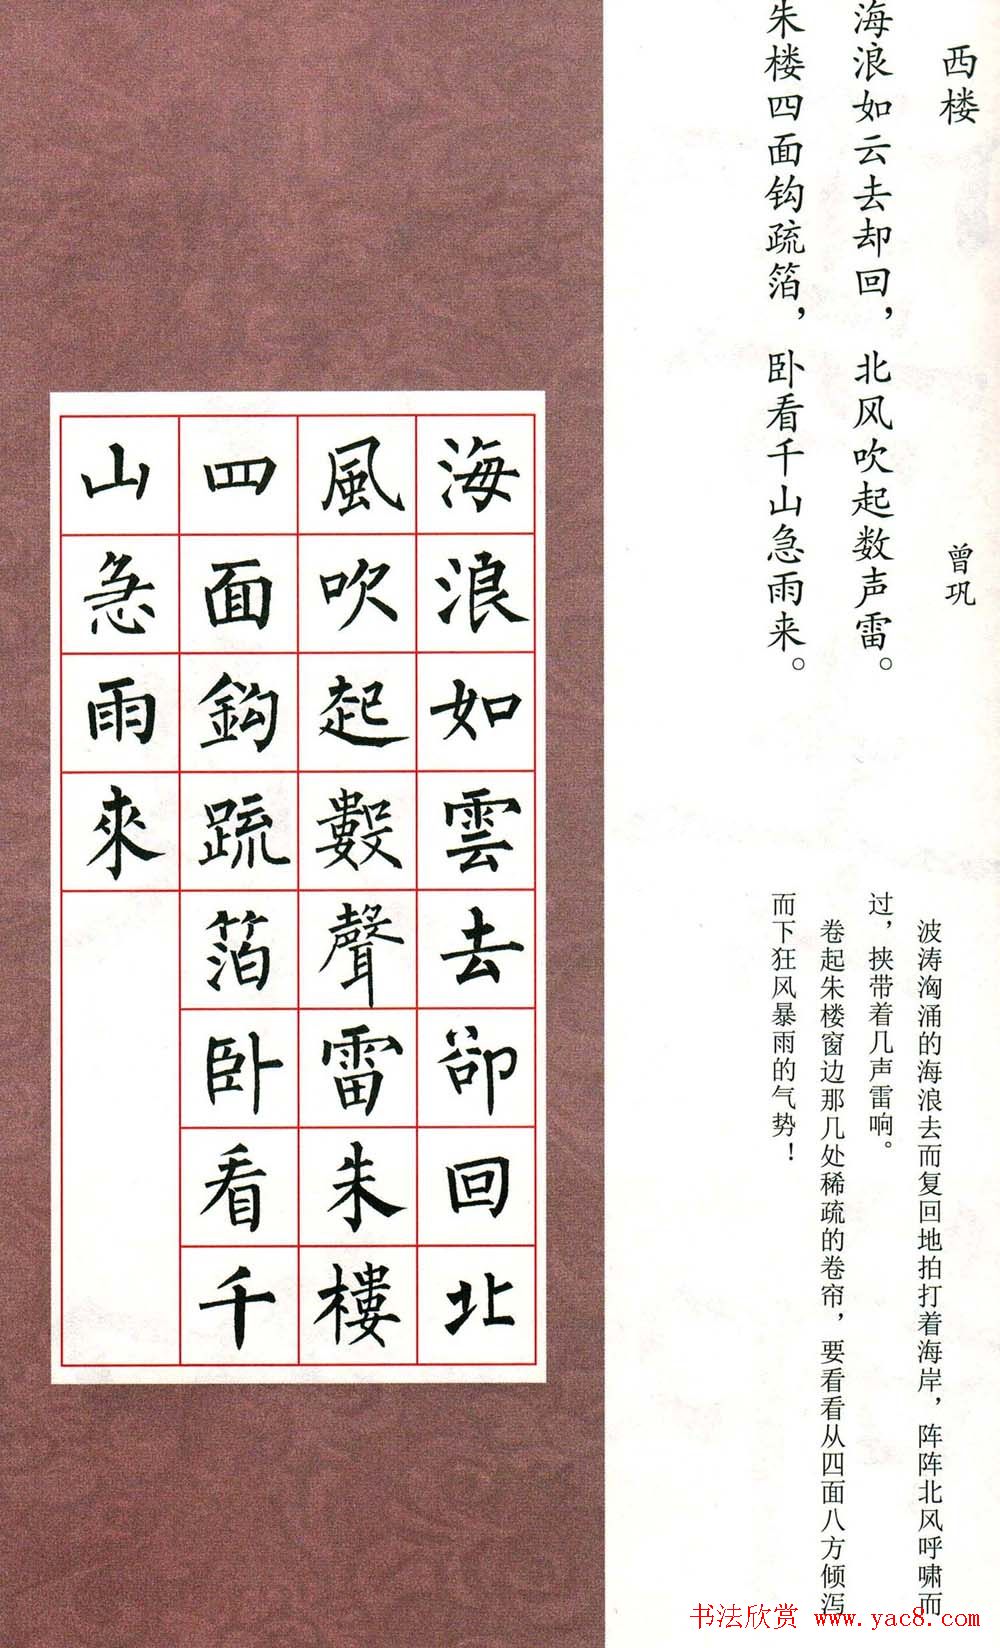 西楼
曾巩
海浪如云去却回，北风吹起数声雷。
朱楼四面钩疏箔，卧看千山急雨来。
波涛汹涌的海浪去而复回地拍打着海岸，阵阵北风呼啸而
过，挟带着几声雷响。
卷起朱楼窗边那几处稀疏的卷帘，要看看从四面八方倾泻
而下狂风暴雨的气势！
海浪如雲去卻回北
風吹起數聲雷朱樓
四面鈎疏箔卧看千
山急雨來
书法欣赏 www.yac8.com